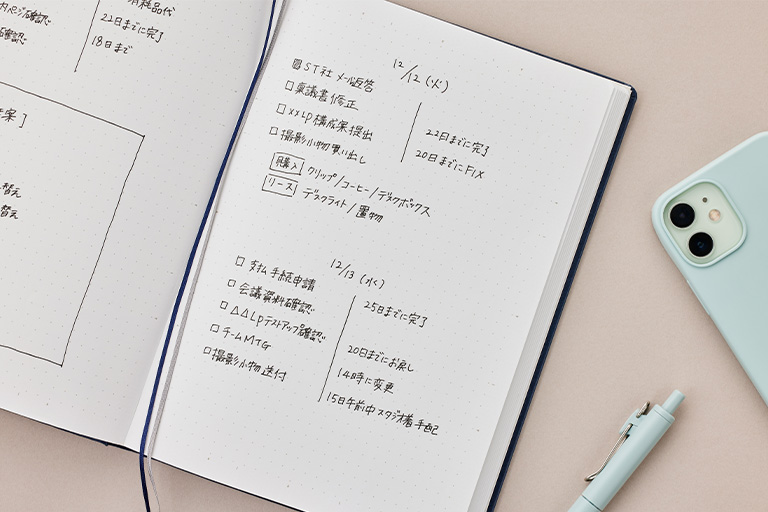 消耗品代
確認
22日までに完了
確認
18日まで
案]
替え
替え
12/12 (火)
ST社 メール返答
稟議書修正
××LP構成案提出
22日までに完了
撮影小物買い出し
20日までにFIX
購入 クリップ/コーヒー/デスクボックス
リース デスクライト/置物
12/13 (水)
支払手続申請
25日までに完了
会議資料確認
△△LPテストアップ確認
20日までにお戻し
チームMTG
14時に変更
撮影小物送付
15日午前中スタジオ着手配